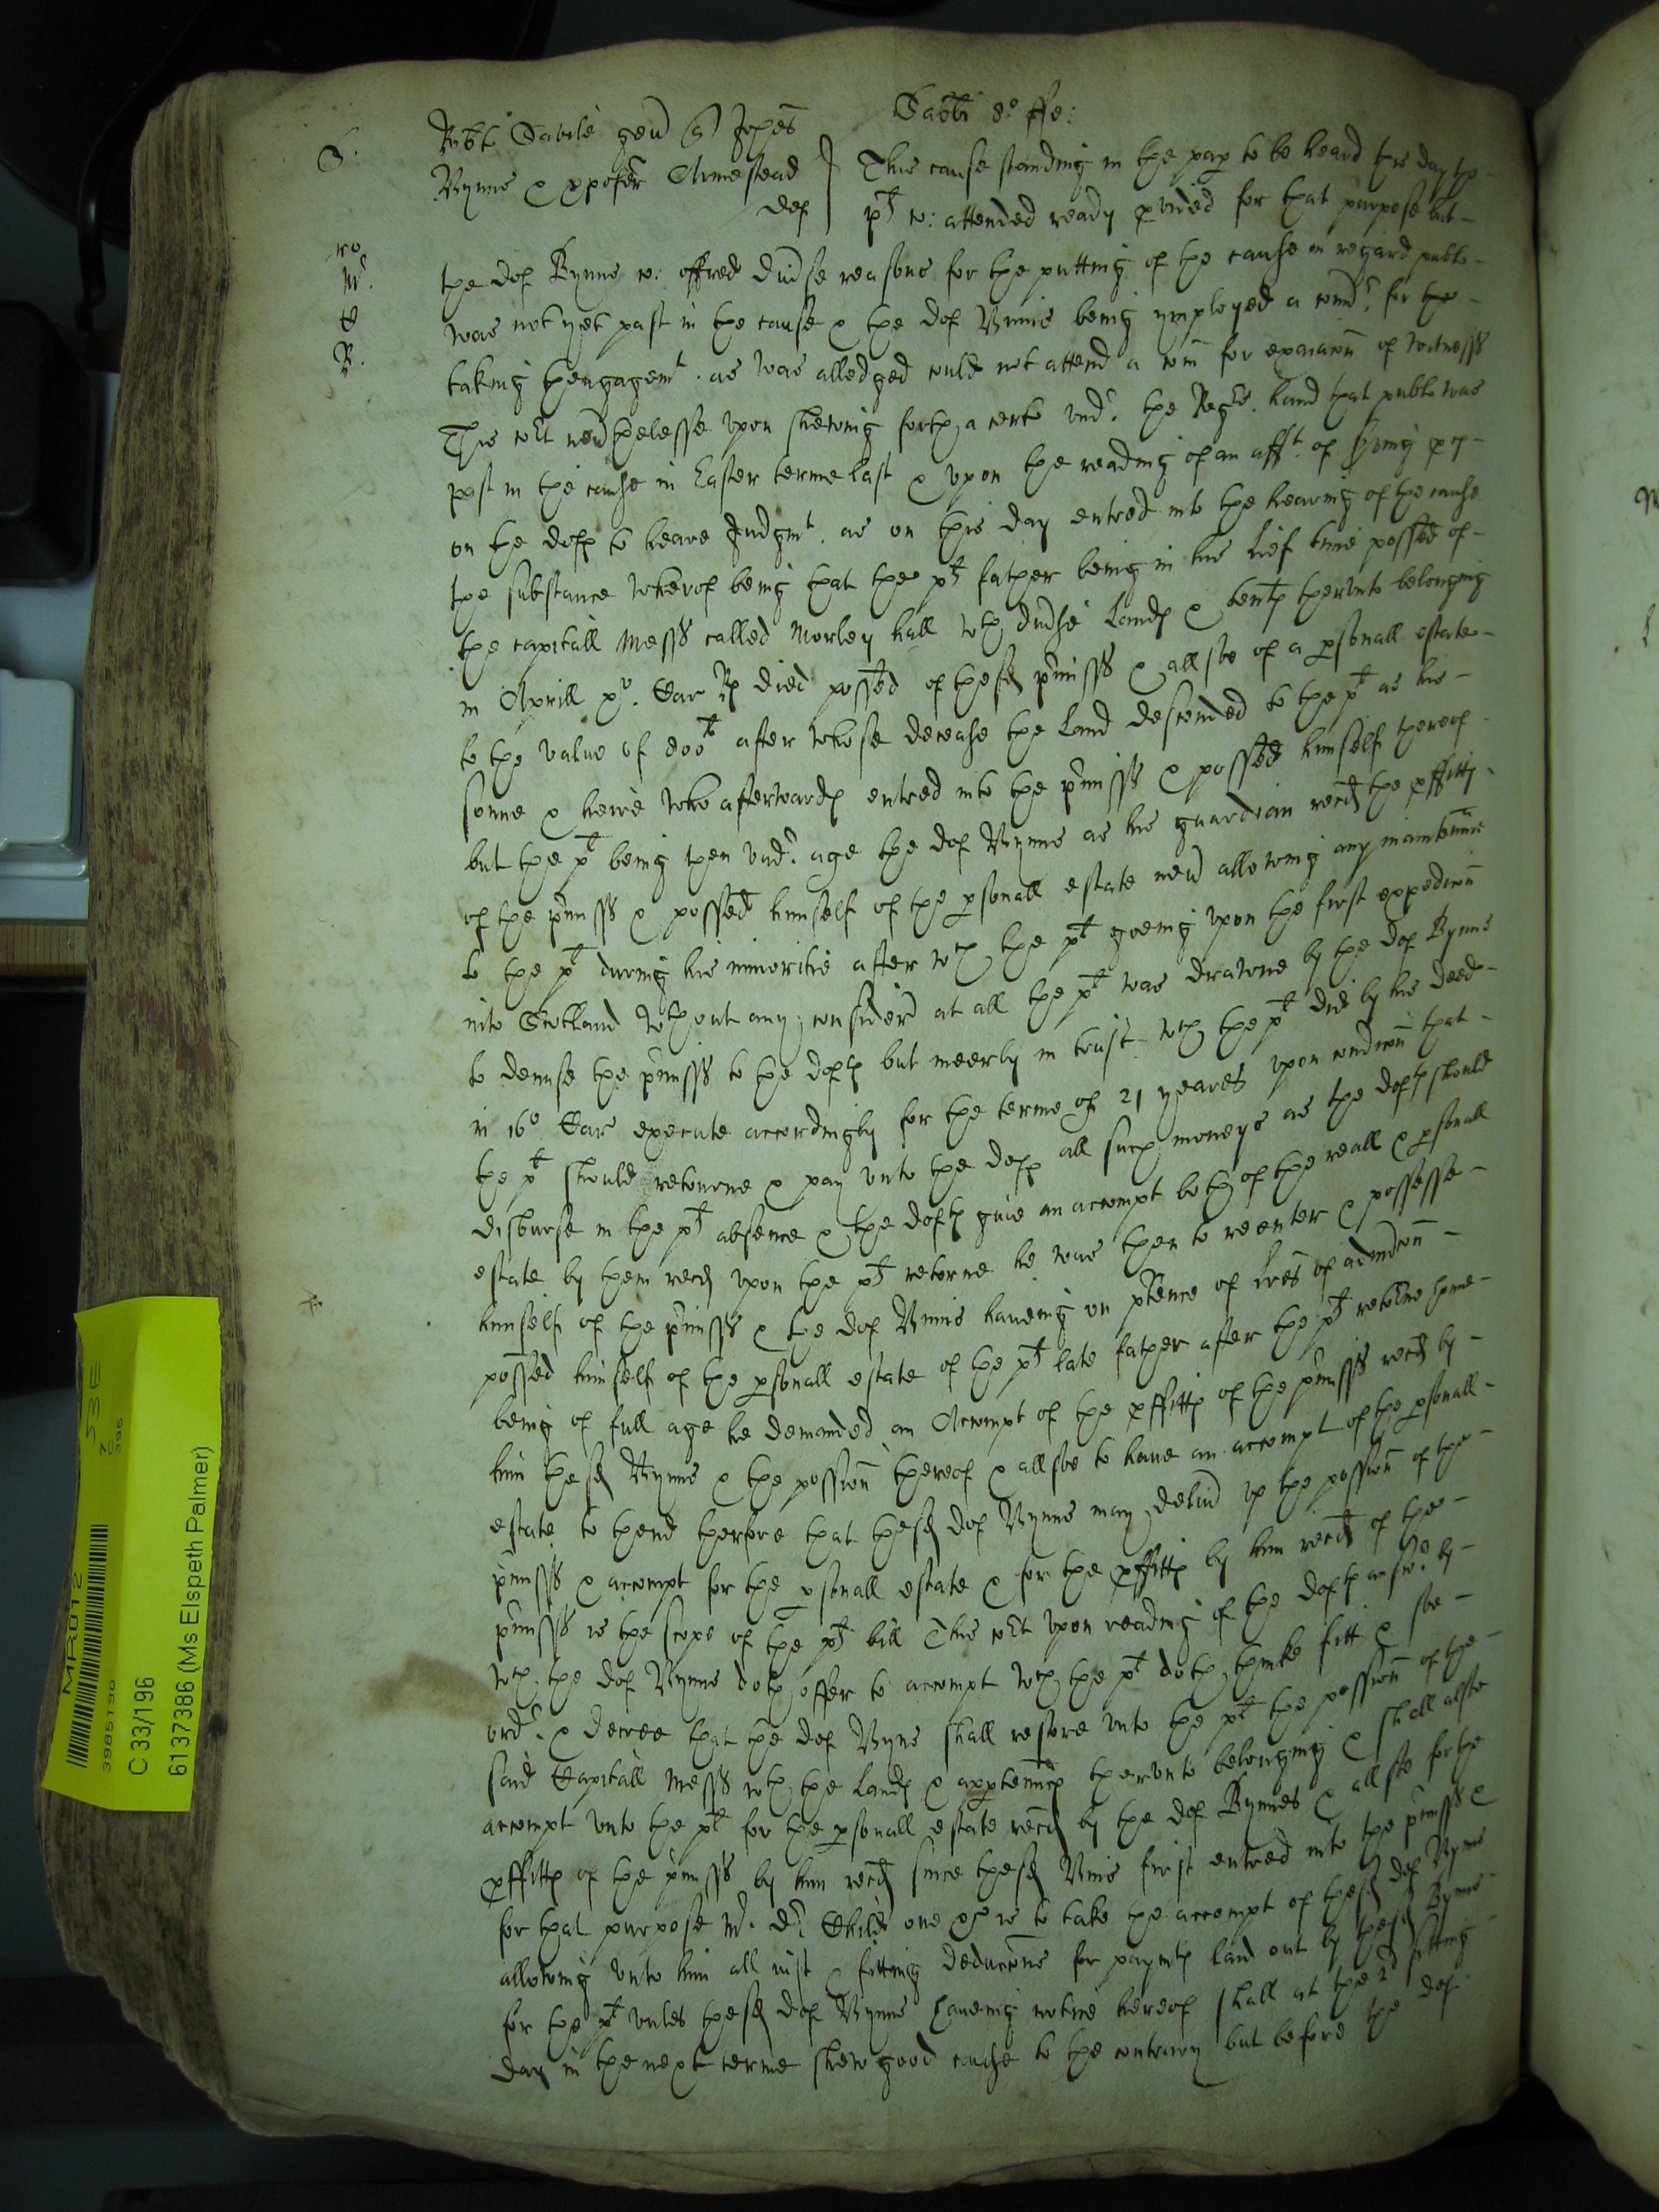 Sabti 8º ffe:
S.
Robte Savile gen q Johes
Bynns & Xpofer Armestead
def
This cause standing in the pap to be heard this day the
plt co: attended ready pvided for that purpose but
the def Bynns co: offred divse reasons for the putting of the cause in regard publi
was not yet past in the cause & the def Binns being ymployed a comr. for the
taking thengagemt. as was alledged could not attend a com for exaiacon of witness
This cort nevthelesse vpon shewing forth a certe vndr. the Regrs. hand that publi was
past in the cause in Easter terme last & vpon the reading of an afft. of
on the defts to heare Judgmt. as on this day entred into the hearing of the cause
the substance wherof being that the plts father being in his lief time possed of
the capitall Mess called Morley hall wth divse Lands & tents thervnto belonging
in Aprill Car Rs died possed of thesd pmisss & allsoe of a psonall estate
to the value of 800l after whose decease the Land descended to the plt as his
sonne & heire who afterwards entred into the pmisss & possed himself thereof
but the plt being then vndr. age the def Bynns as his guardian recd the pffitts
of the pmisss & possed himself of the psonall estate nev allowing any maintennce
to the plt during his minoritie after wch the plt goeing vpon the first expedicon
into Scotland wthout any considerd at all the plt was drawne by the def Bynns
to demise the pmisss to the defts but meerly in trust wch the plt did by his deed
in 16º Car execute accordingly for the terme of 21 yeares vpon condicon that
the plt should retourne & pay vnto the defts all such moneys as the defts should
disburse in the plts absence & the defts give an accompt both of the reall & psonall
estate by them recd vpon the plts retorne he was then to reenter & possesse
himself of the pmisss & the def Binns haveing on ptence of Lres of admcon
possed himself of the psonall estate of the plts late father after the plts retorne hime
being of full age he demanded an Accompt of the pffitts of the pmisss recd by
him thesd Bynns & the possion thereof & allsoe to have an accompt of the psonall
estate to thend therfore that thesd def Bynns may deliv vp the possion of the
pmisss & accompt for the psonall estate & for the pffitts by him recd of the
pmisss is the scope of the plts bill This cort vpon reading of the defts answ. by
wch the def Bynns doth offer to accompt wth the plt doth thinke fitt & soe
ordr. & decree that the def Byns shall restore vnto the plt the possion of the
said Capitall Mess wth the Lands & apptennces thervnto belonging & shall alsoe
accompt vnto the plt for the psonall estate recd by the def Bynns & allsoe for the
pffitts of the pmisss by him recd since thesd Binns first entred into the pmisss &
for that purpose Mr. Dr. Childe one &c is to take the accompt of thesd def Byns
allowing vnto him all iust & fitting deduccons for paymts laid out by thesd Byns
for the plt vnles thesd def Bynns haveing notice hereof shall at the 2d sitting
day in the next terme shew good cause to the contrary but before the def
MR012
53E
3985196
C 33/196
6137386 (Ms Elspeth Palmer)